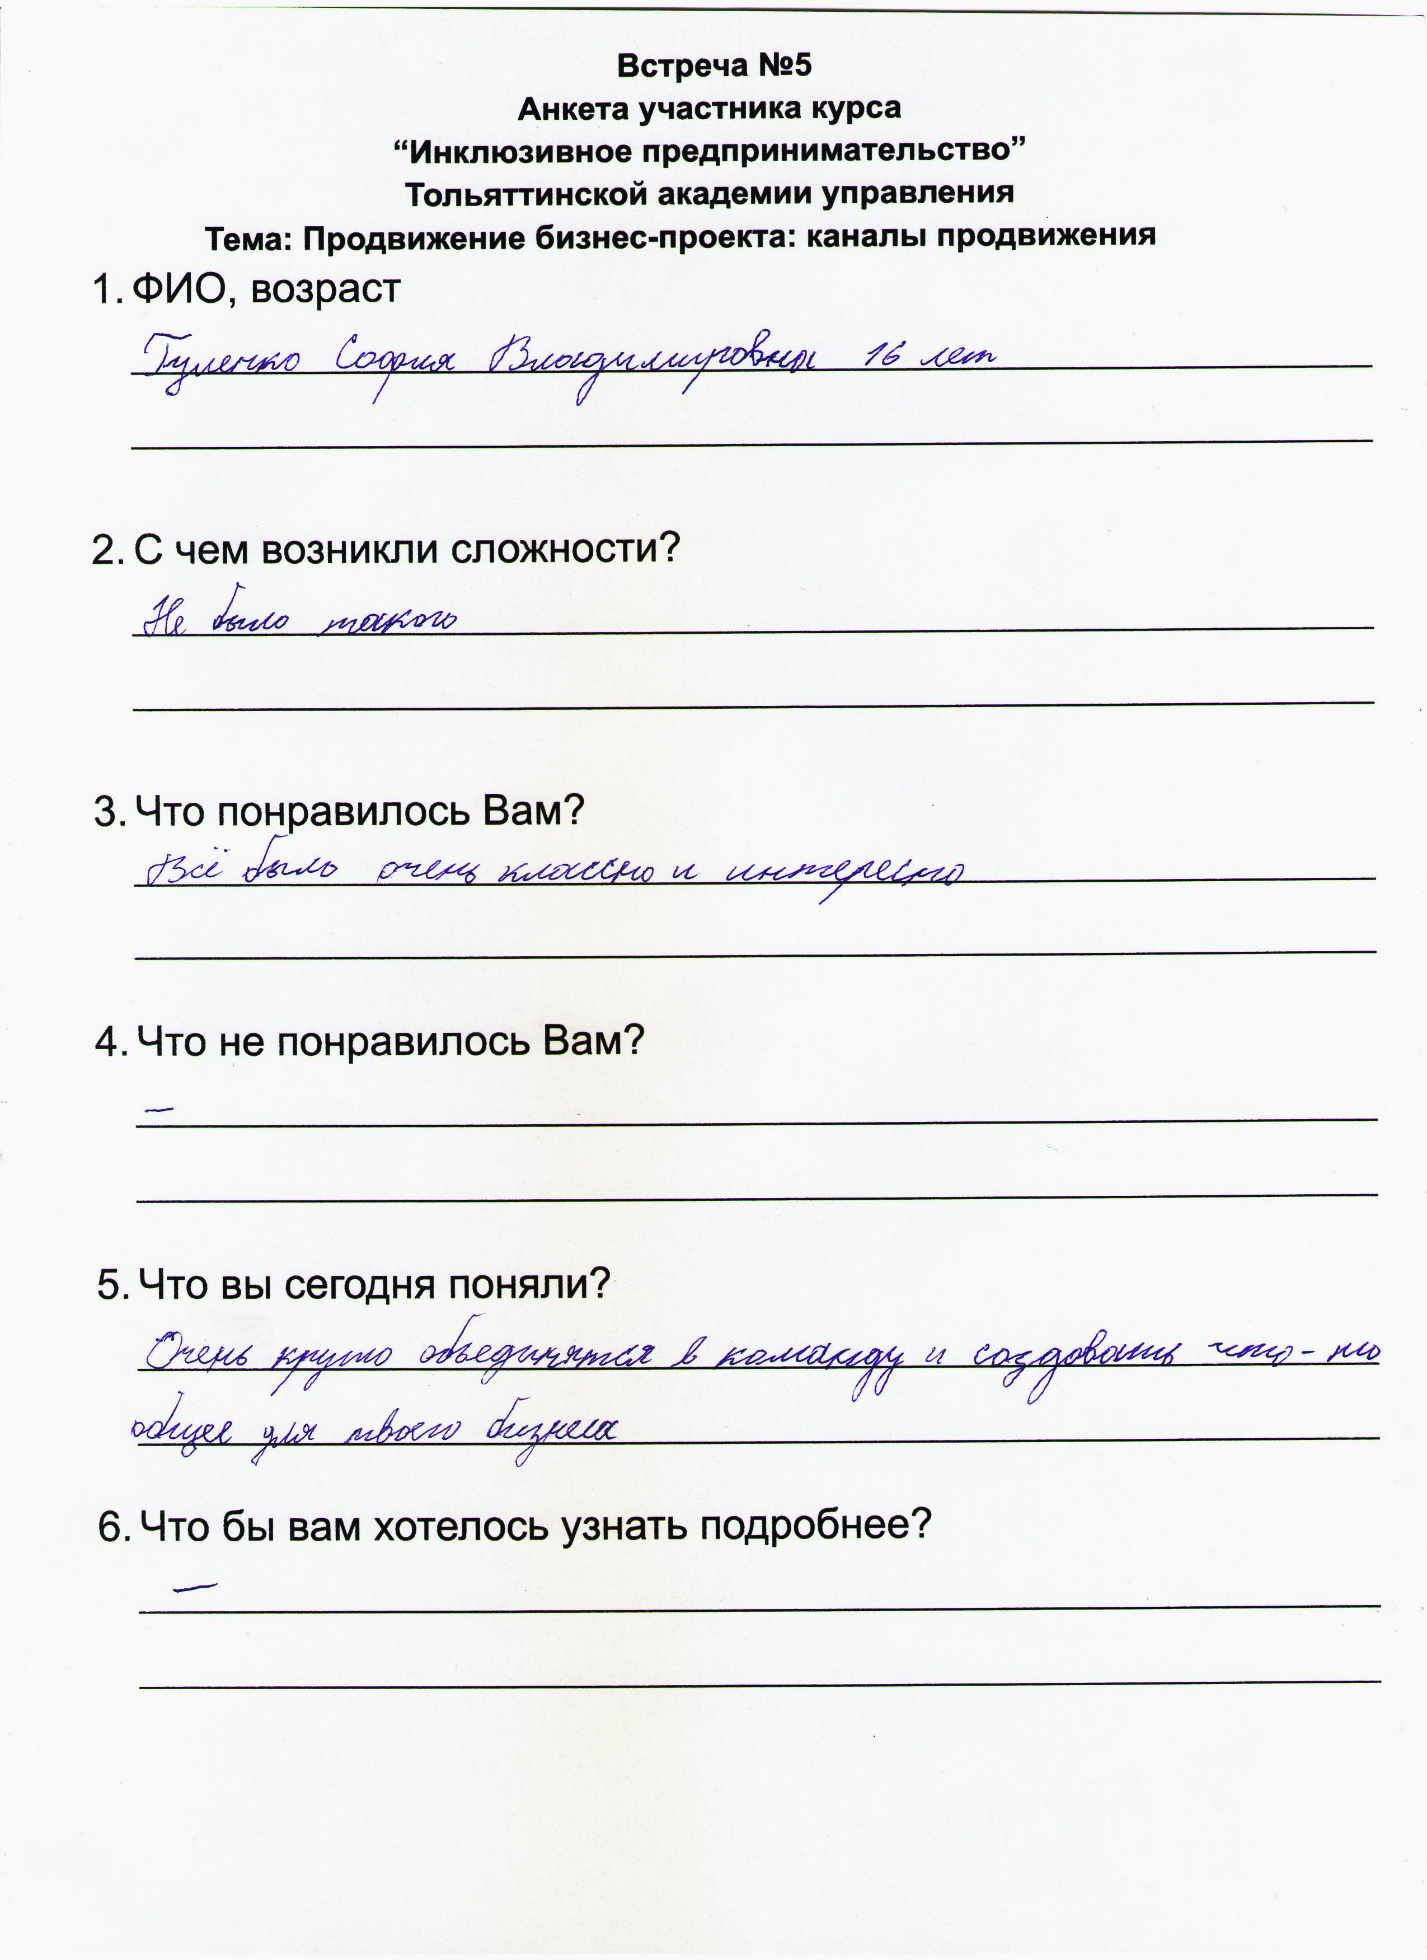 Встреча №5
Анкета участника курса
“Инклюзивное предпринимательство”
Тольяттинской академии управления
Тема: Продвижение бизнес-проекта: каналы продвижения
1. ФИО, возраст
Гуленко София Владимировна 16 лет
2. С чем возникли сложности?
Не было такого
3. Что понравилось Вам?
Всё было очень классно и интересно
4. Что не понравилось Вам?
–
5. Что вы сегодня поняли?
Очень круто объединятся в команду и создовать что-то
общее для твоего бизнеса
6. Что бы вам хотелось узнать подробнее?
–